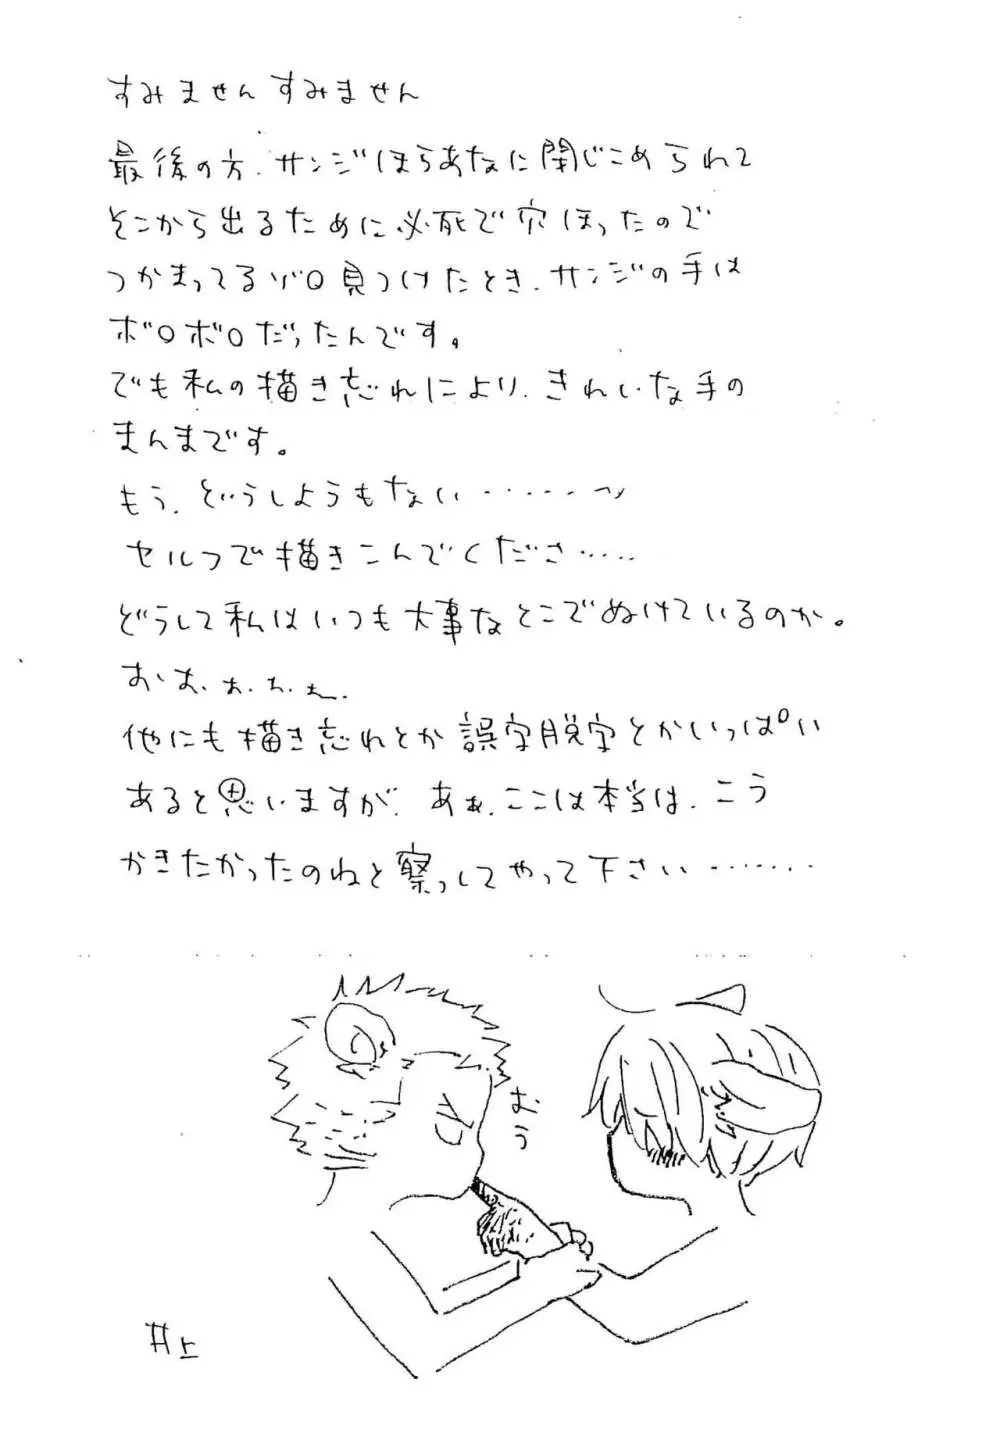 すみませんすみません
最後の方、サンジほらあなに閉じこめられて
そこから出るために必死で穴ほったので
つかまってるゾロ見つけたとき、サンジの手は
ボロボロだったんです。
でも私の描き忘れにより、きれいな手の
まんまです。
もう、どうしようもない……ッ
セルフで描きこんでくださ……
どうして私はいつも大事なとこでぬけているのか。
おぉぉぉぉ
他にも描き忘れとか誤字脱字とかいっぱい
あると思いますが、あぁ、ここは本当は、こう
かきたかったのねと察っしてやって下さい………
おう
井上